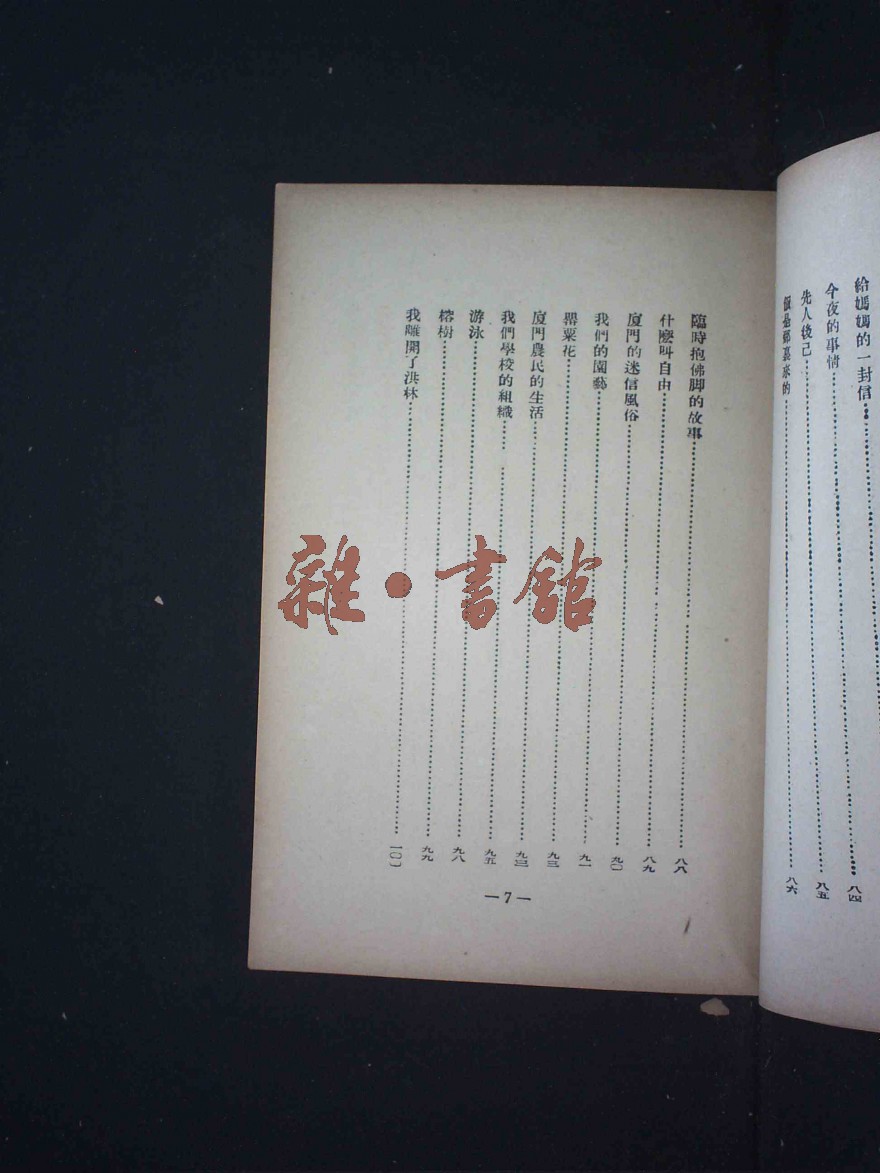 給媽媽的一封信……八四
今夜的事情……八五
先人後己……八五
裏來的……八六
臨時抱佛脚的故事……八八
什麼叫自由……八九
廈門的迷信風俗……九〇
我們的園藝……九一
罌粟花……九三
廈門農民的生活……九三
我們學校的組織……九五
游泳……九八
榕樹……九九
我離開了洪林……一〇一
—7—
雜·書館